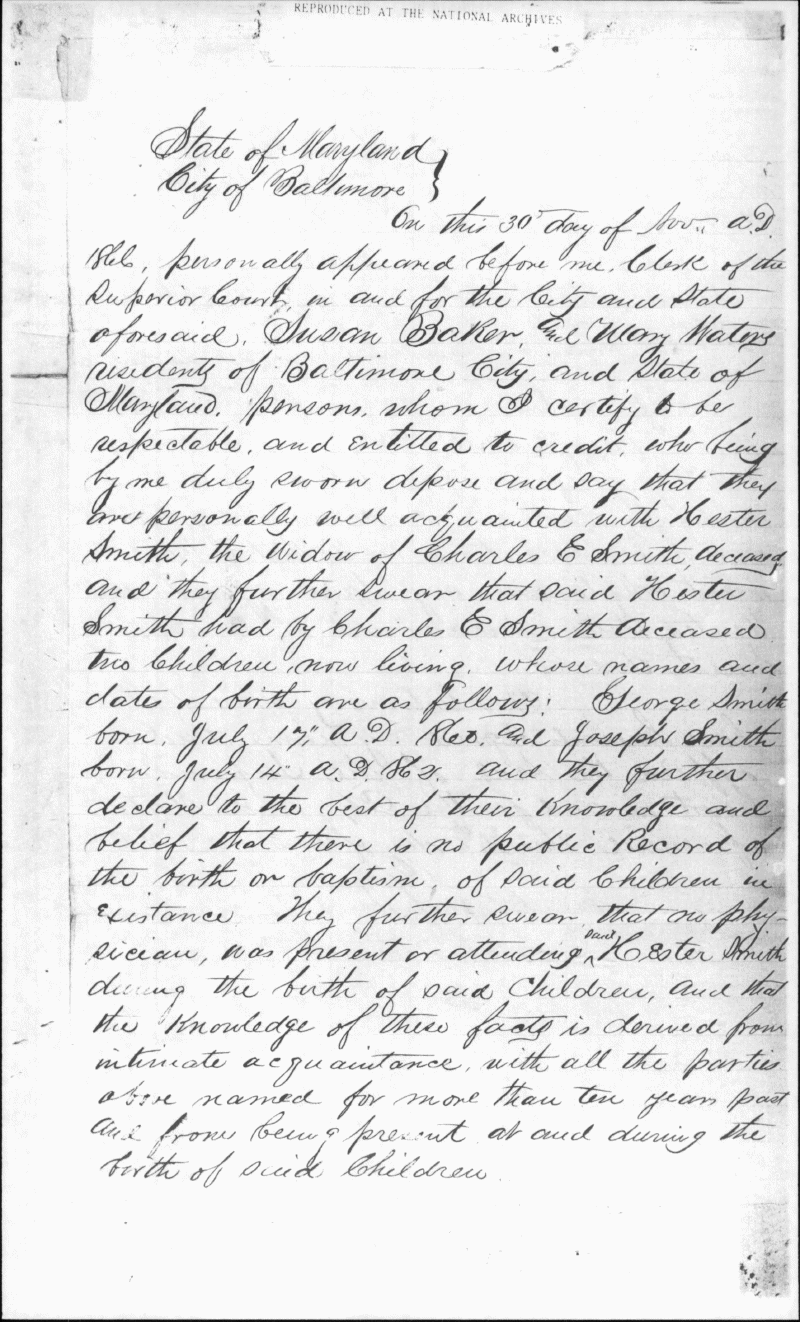 REPRODUCED AT THE NATIONAL ARCHIVES
State of Maryland }
City of Baltimore }
On this 30" day of Nov. A.D.
1866, personally appeared before me, Clerk of the
Superior Court, in and for the City and State
aforesaid, Susan Baker, and Mary Waters
residents of Baltimore City, and State of
Maryland, persons, whom I certify to be
respectable, and entitled to credit, who being
by me duly sworn depose and say that they
are personally well acquainted with Hester
Smith, the Widow of Charles E Smith, deceased,
and they further swear that said Hester
Smith had by Charles E Smith deceased
two Children, now living, whose names and
dates of birth are as follows: George Smith
born, July 17" A.D. 1860, and Joseph Smith
born, July 14" A.D. and they further
declare to the best of their Knowledge and
belief that there is no public Record of
the birth or baptism, of said Children in
existance They further swear, that no phy-
sician, was present or attending, said Hester Smith
during the birth of said Children, and that
the Knowledge of these facts is derived from
intimate acquaintance, with all the parties
above named for more than ten years past
and from being present at and during the
birth of said Children